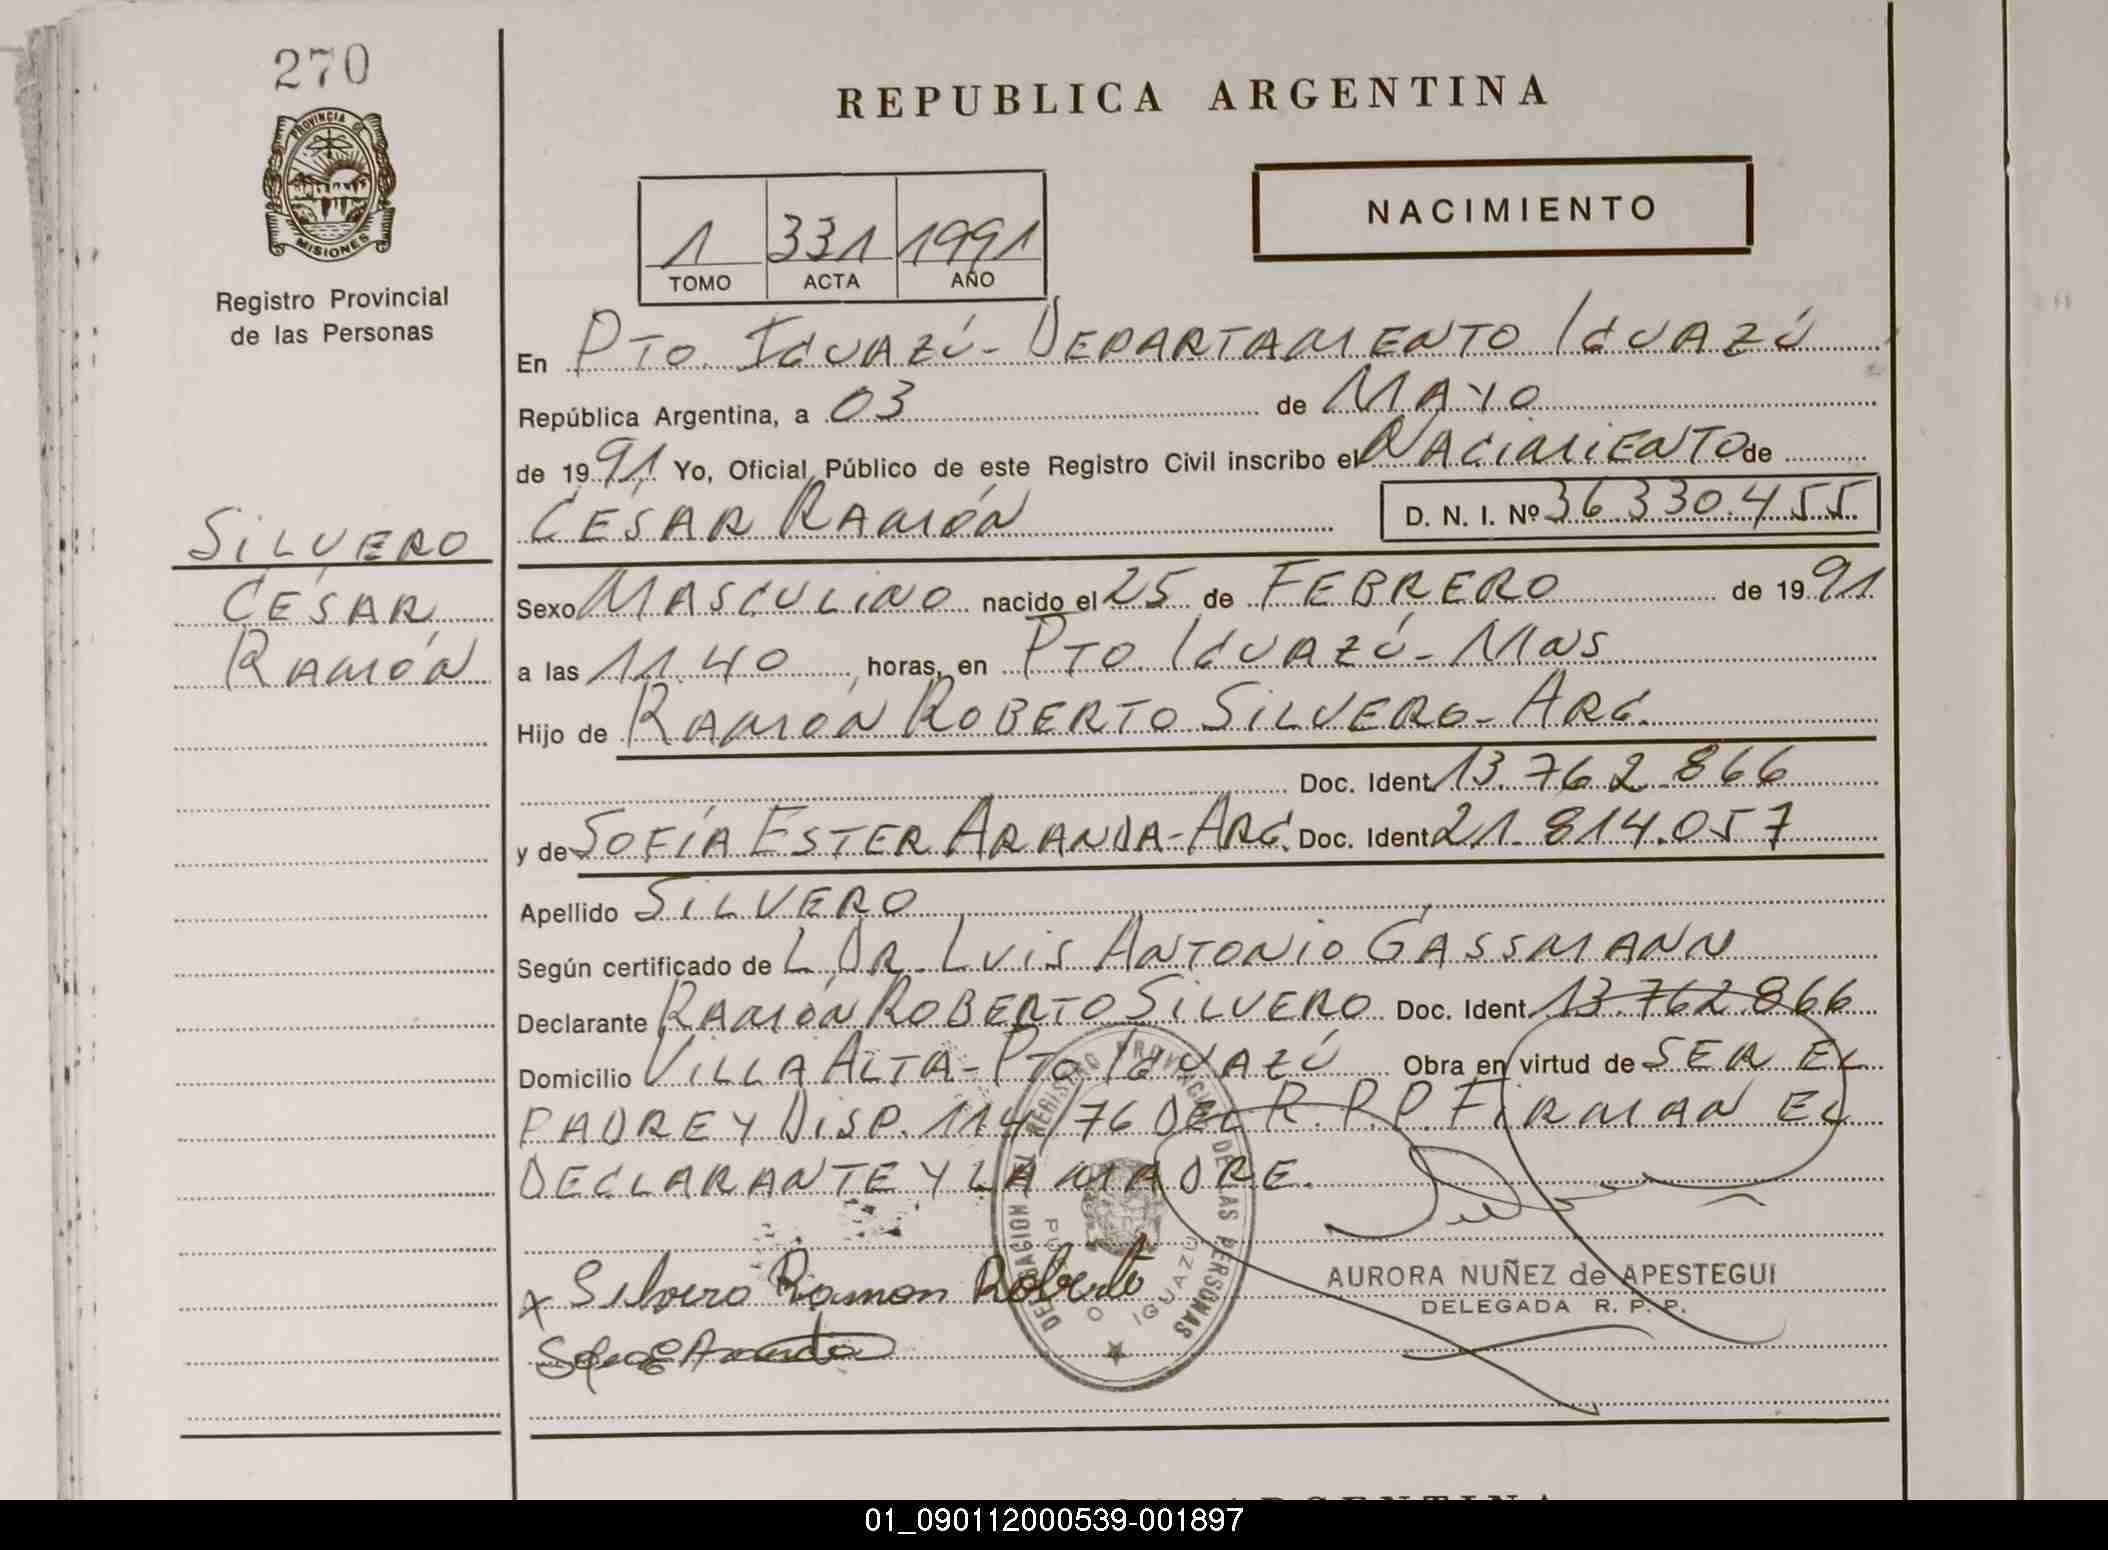 270
PROVINCIA DE
MISIONES
Registro Provincial
de las Personas
SILVERO
CÉSAR
RAMÓN
REPUBLICA ARGENTINA
NACIMIENTO
1 331 1991
TOMO ACTA AÑO
En PTO. IGUAZÚ - DEPARTAMENTO IGUAZÚ
República Argentina, a 03 de MAYO
de 1991 Yo, Oficial Público de este Registro Civil inscribo el NACIMIENTO de
CÉSAR RAMÓN D. N. I. Nº 36.330.455
Sexo MASCULINO nacido el 25 de FEBRERO de 1991
a las 11.40 horas, en PTO. IGUAZÚ - MNS
Hijo de RAMÓN ROBERTO SILVERO - ARG.
Doc. Ident. 13.762.866
y de SOFÍA ESTER ARANDA - ARG. Doc. Ident. 21.814.057
Apellido SILVERO
Según certificado de L DR. LUIS ANTONIO GASSMANN
Declarante RAMÓN ROBERTO SILVERO Doc. Ident. 13.762.866
Domicilio VILLA ALTA - PTO IGUAZÚ Obra en virtud de SER EL
PADRE Y DISP. 114/76 DEL R.P.P. FIRMAN EL
DECLARANTE Y LA MADRE.
DELEGACION REGISTRO PROVINCIAL DE LAS PERSONAS
PUERTO IGUAZU
x Silvero Ramon Roberto
AURORA NUÑEZ de APESTEGUI
DELEGADA R. P. P.
01_090112000539-001897